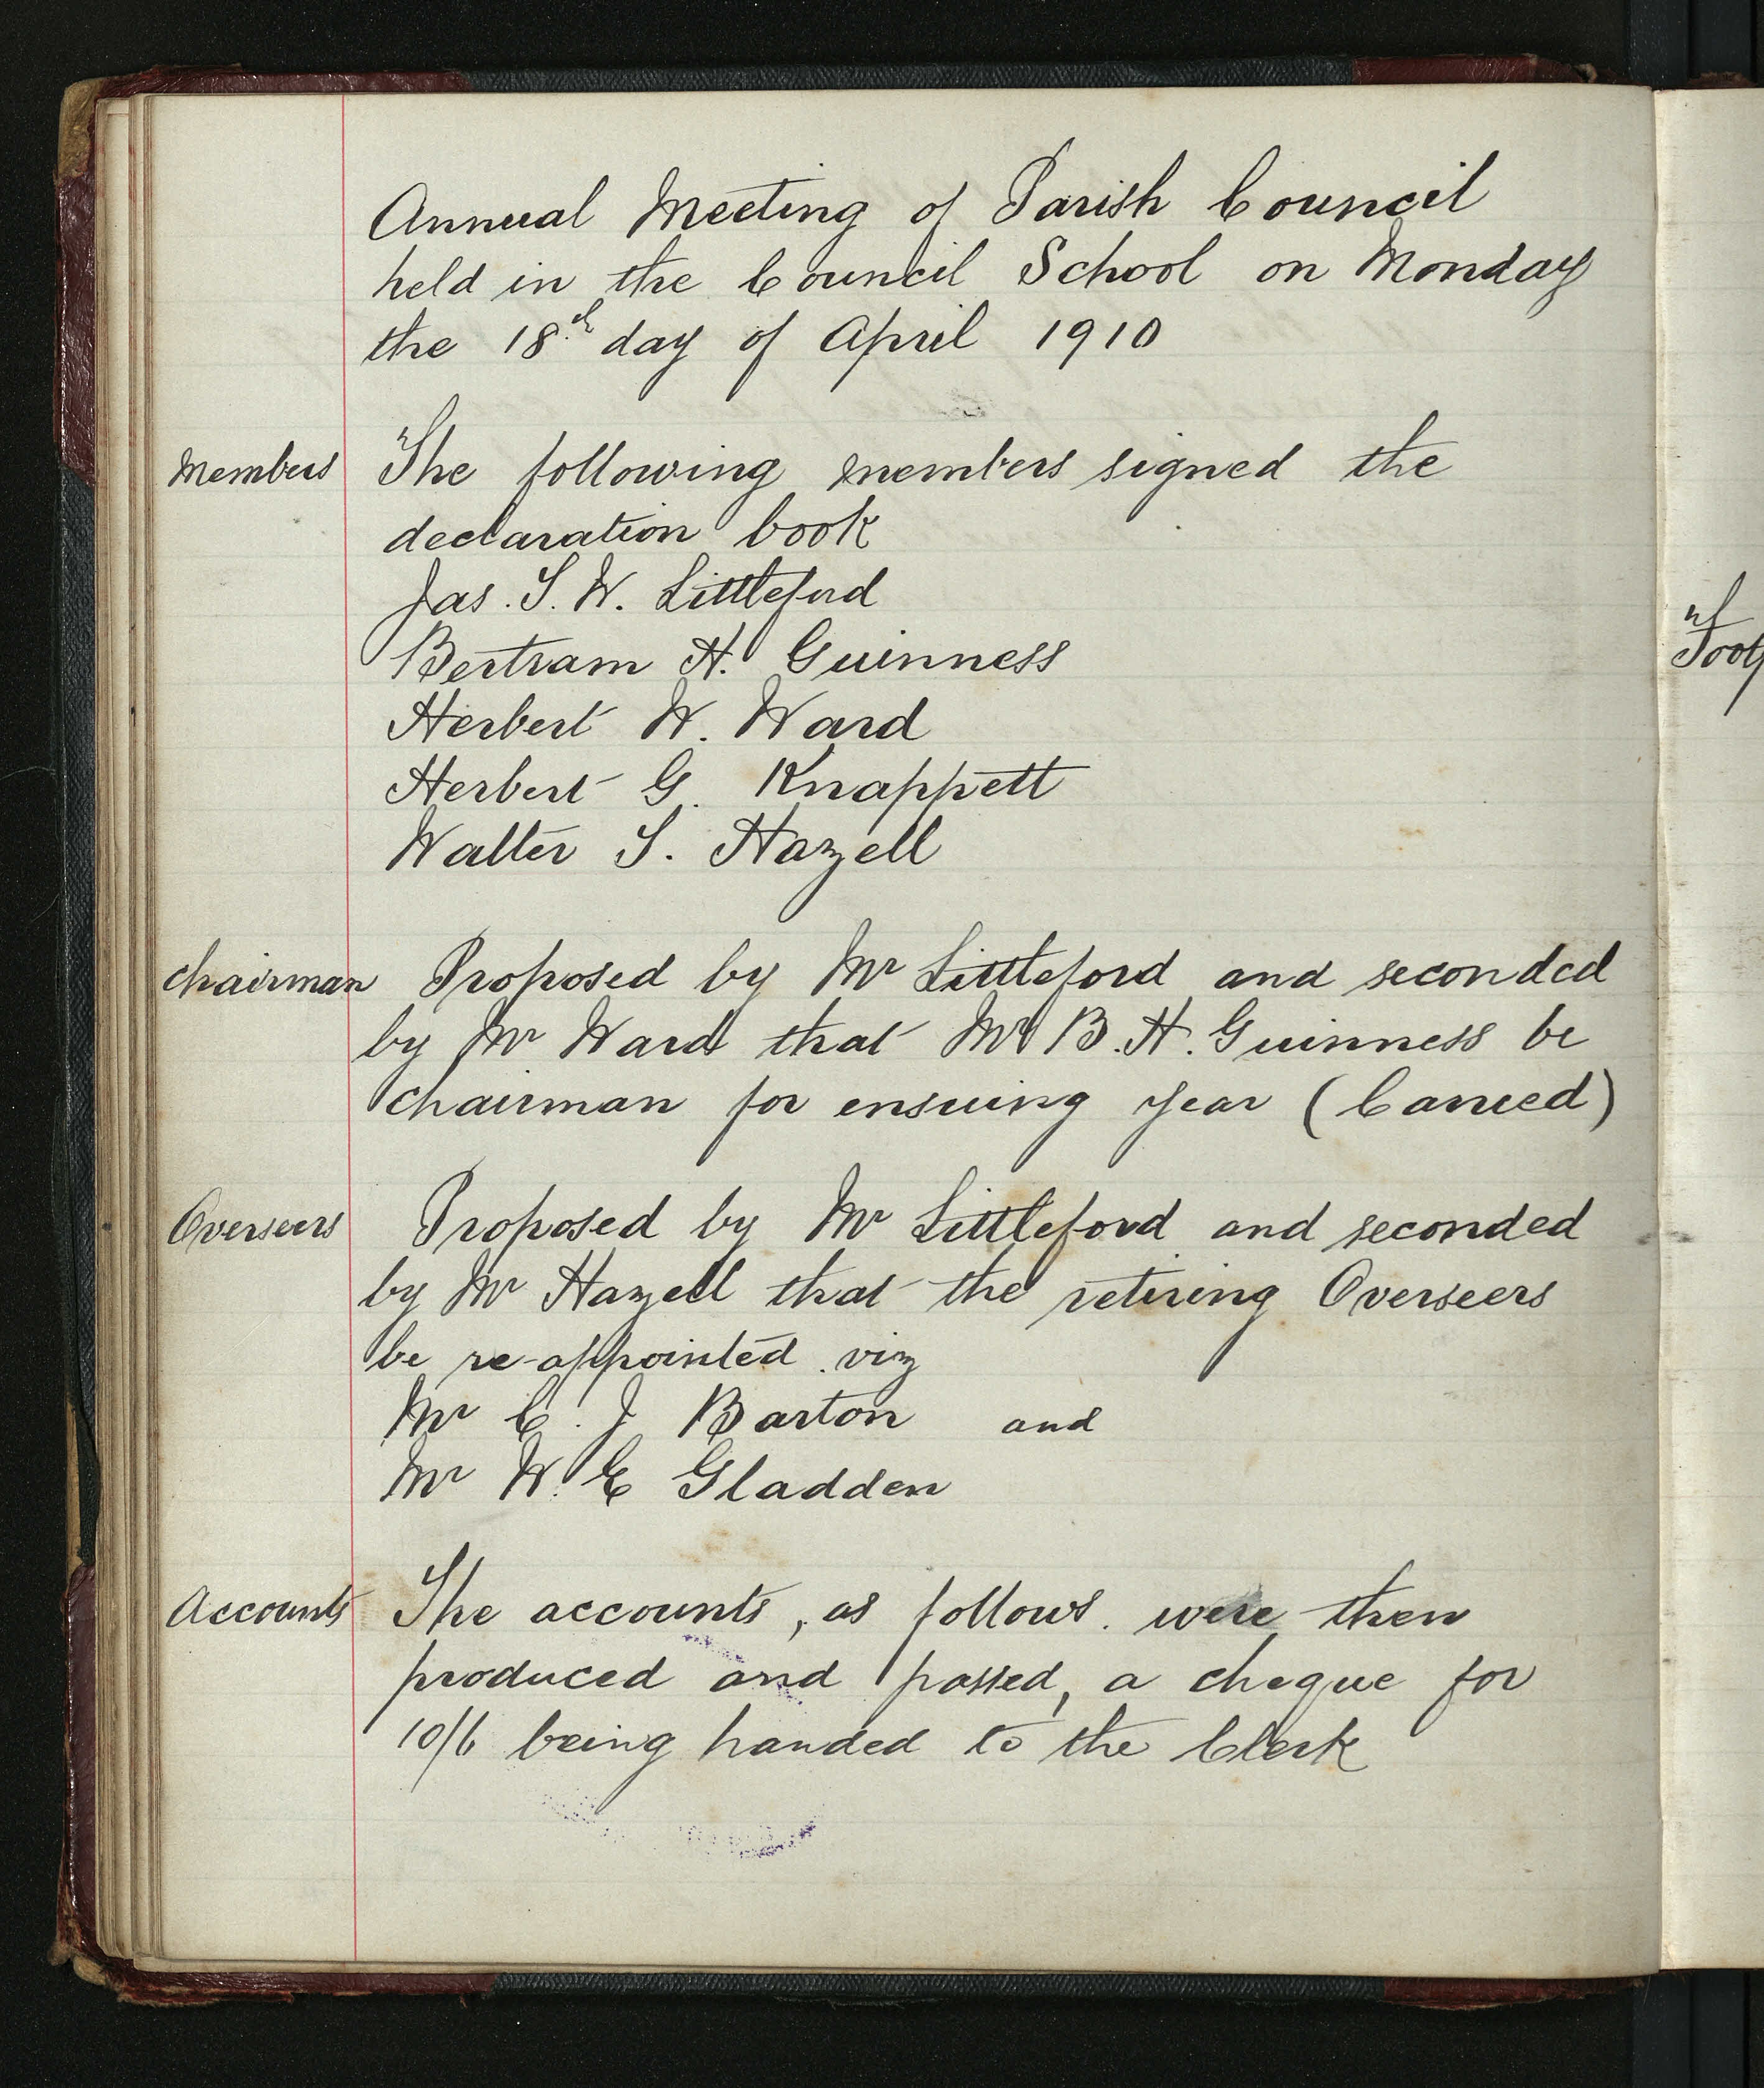 Annual Meeting of Parish Council
held in the Council School on Monday
the 18th day of April 1910
Members
The following members signed the
declaration book
Jas. S. W. Littleford
Bertram H. Guinness
Herbert W. Ward
Herbert G. Knappett
Walter S. Hazell
Chairman
Proposed by Mr Littleford and seconded
by Mr Ward that Mr B. H. Guinness be
chairman for ensuing year (Carried)
Overseers
Proposed by Mr Littleford and seconded
by Mr Hazell that the retiring Overseers
be re-appointed . viz
Mr C. J Barton and
Mr W. E Gladden
Accounts
The accounts, as follows. were then
produced and passed, a cheque for
10/6 being handed to the Clerk